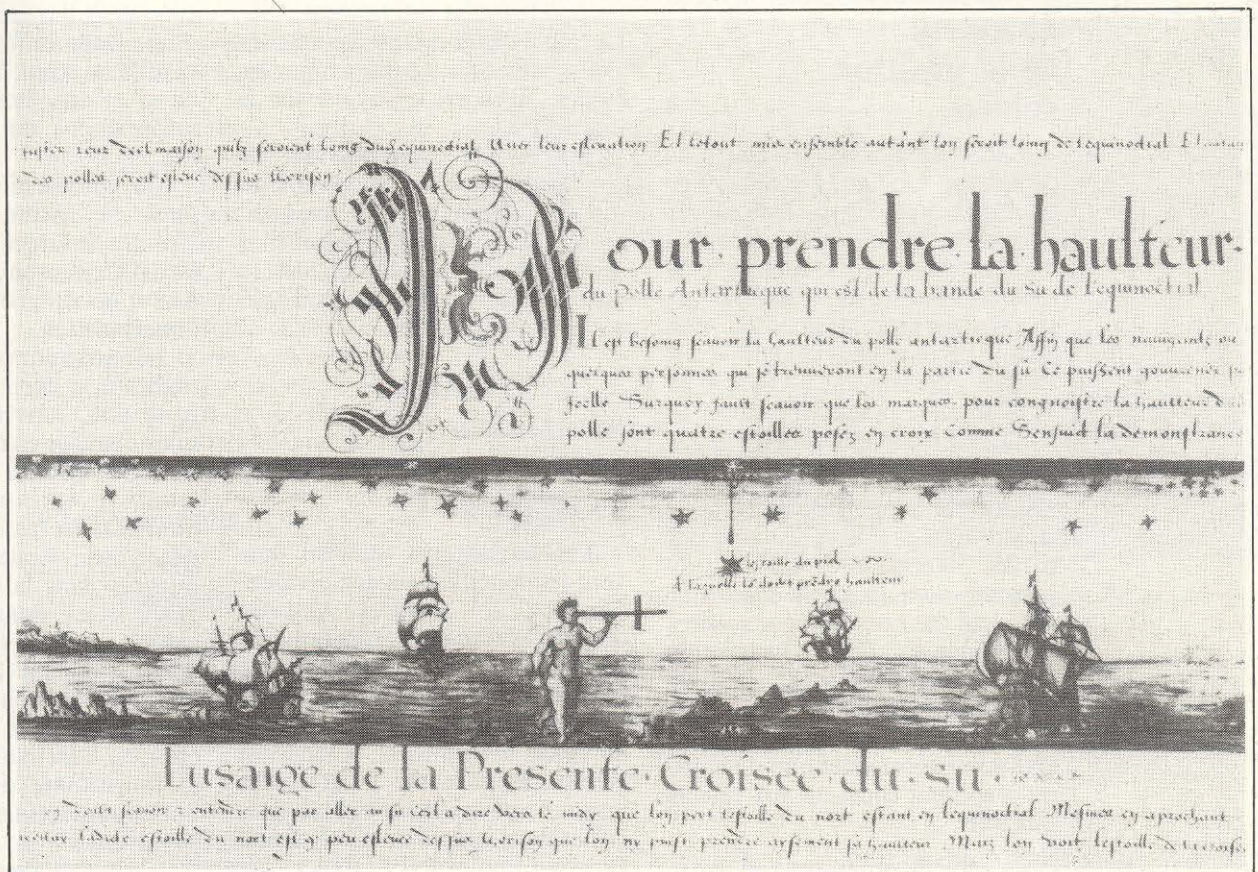 quilz seroient loing dud equinoctial Avec leur eslevation Et letout mis ensemble autant lon seroit loing de lequinoctial Et
des polles seroit esleve dessus lorison
Pour · prendre · la · haulteur ·
du polle Antartique qui est de la bande du Su de lequinoctial
Il est besoing scavoir la haulteur du polle antartique Affin que les navigantz ou
quelques personnes qui se trouveront en la partie du su Ce puissent gouverner
Icelle Surquoy fault scavoir que les marques pour congnoistre la haulteur
polle sont quatre estoilles posez en croix Comme Sensuict la demonstrance
lestoille du pied
A laquelle se doibt prendre haulteur
Lusaige · de · la · Presente · Croisee · du · su ·
doibt scavoir & entendre que par aller au su cest a dire vers le midy que lon pert lestoille du nort estant en lequinoctial Mesmes en aprochant
ladicte estoille du nort est sy peu eslevee dessus lorison que lon ny puist prendre aysement sa haulteur Mais lon voit lestoille de la croisee